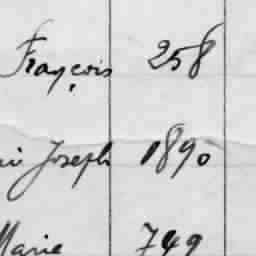 François 258
Joseph 1890
Marie 749